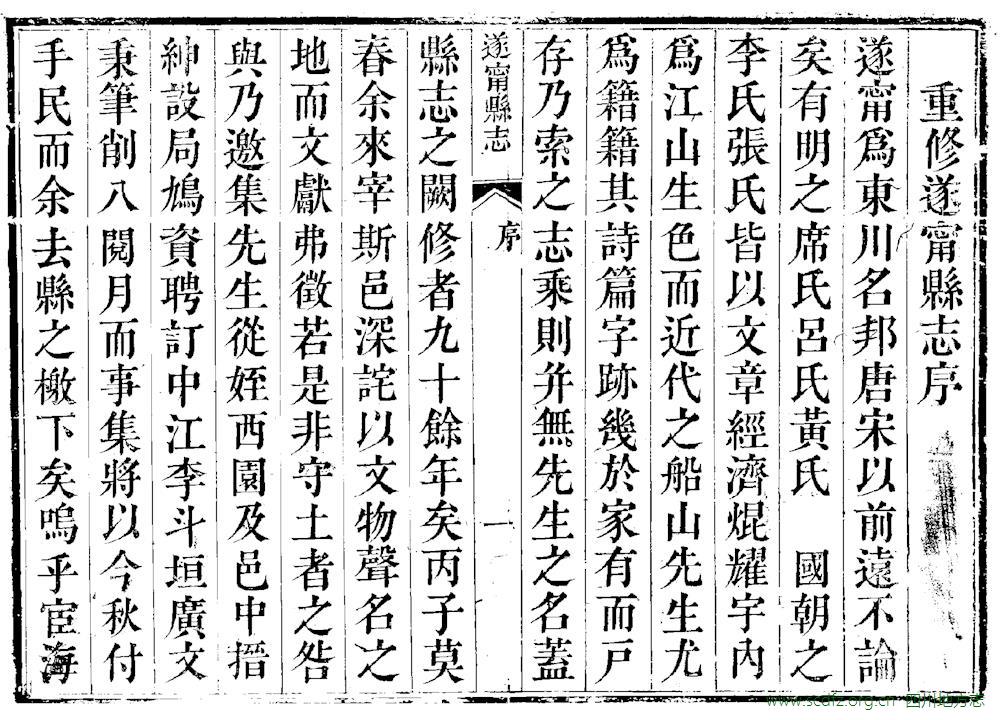 重修遂甯縣志序
遂甯爲東川名邦唐宋以前遠不論
矣有明之席氏呂氏黃氏　國朝之
李氏張氏皆以文章經濟焜耀宇內
爲江山生色而近代之船山先生尤
爲籍籍其詩篇字跡幾於家有而戸
存乃索之志乘則并無先生之名蓋
遂甯縣志　序　一
縣志之闕修者九十餘年矣丙子莫
春余來宰斯邑深詫以文物聲名之
地而文獻弗徵若是非守土者之咎
與乃邀集先生從姪西園及邑中搢
紳設局鳩資聘訂中江李斗垣廣文
秉筆削八閱月而事集將以今秋付
手民而余去縣之檄下矣嗚乎宦海
www.scdfz.org.cn 四川地方志